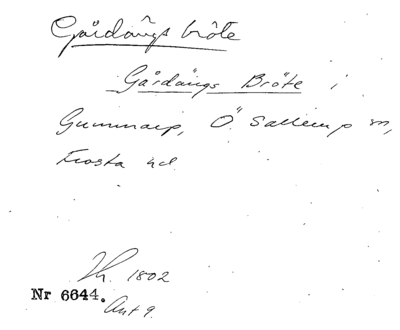 Gårdängs bröte
Gårdängs Bröte i
Gummarp, Ö. Sallerup sn,
Frosta hd
1802
Nr 6644.
Akt 9.